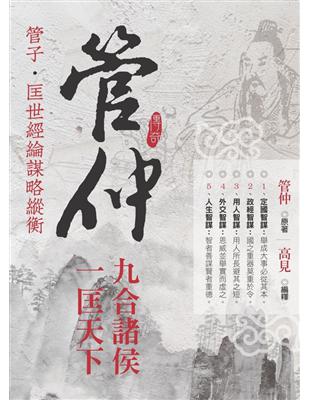 管子．匡世經綸謀略縱衡
管仲
傳奇
九合諸侯
一匡天下
1、定國智謀：舉成大事必從其本。
2、政經智謀：國之重器莫重於令。
3、用人智謀：用人所長避其之短。
4、外交智謀：恩威並舉實而虛之。
5、人生智謀：智者善謀賢者重德。
管仲 ◎原著
高見 ◎編釋